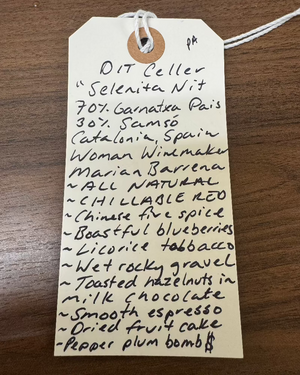 PA
DIT Celler
"Selenita Nit
70% Garnatxa Pais
30% Samsó
Catalonia, Spain
Woman Winemaker
Marian Barrena
~ALL NATURAL
~CHILLABLE RED
~Chinese five spice
~Boastful blueberries
~Licorice tobbacco
~Wet rocky gravel
~Toasted hazelnuts in
milk chocolate
~Smooth espresso
~Dried fruit cake
~Pepper plum bomb$